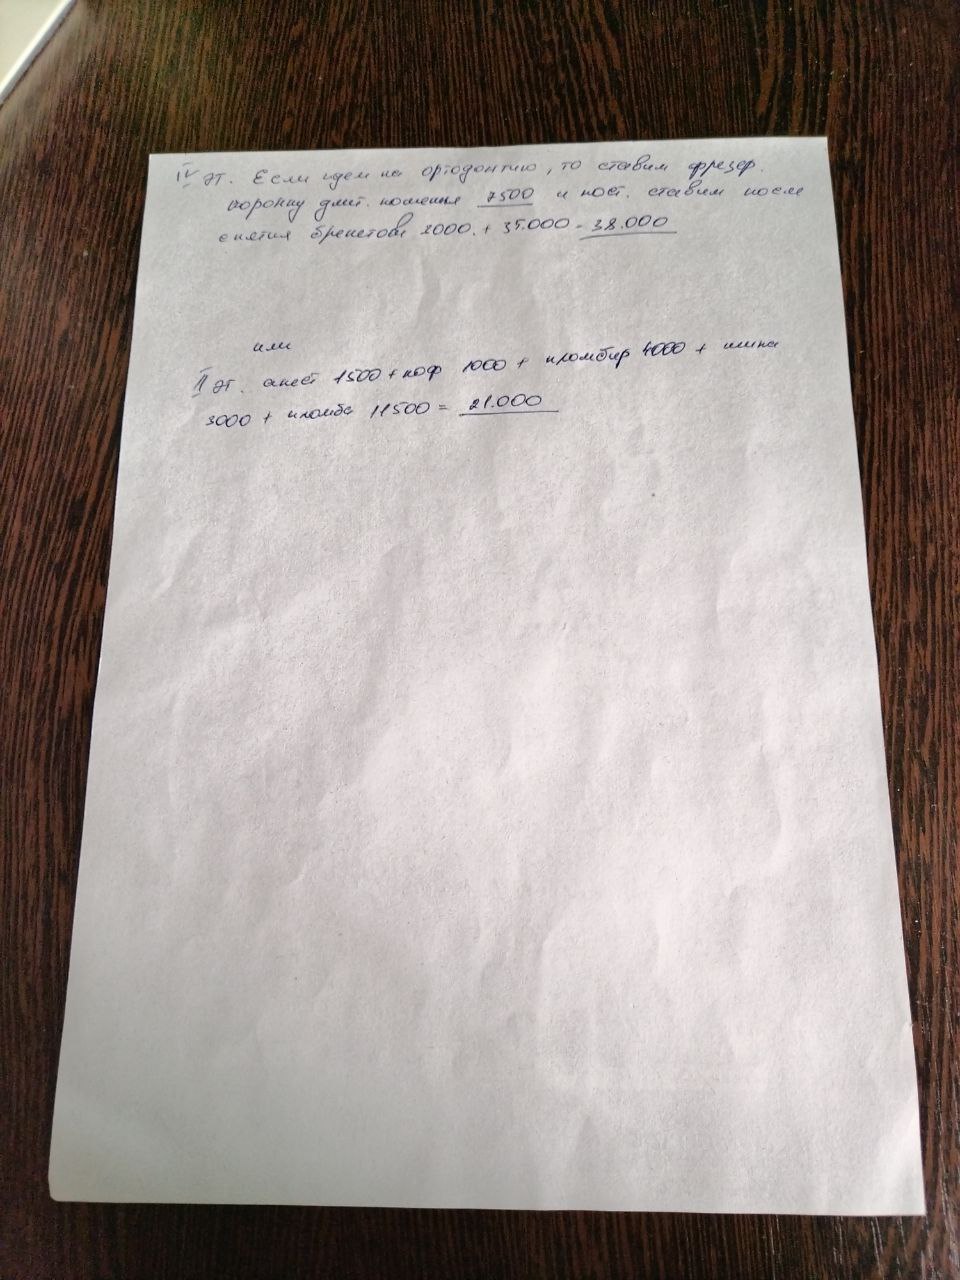 IV эт. Если идем на ортодонтию, то ставим фрезер.
коронку длит. ношения 7500 и пост. ставим после
снятия брекетов 2000. + 35.000 - 38.000
или
II эт. анест 1500 + коф 1000 + пломбир 4000 + шина
3000 + пломба 11500 = 21.000